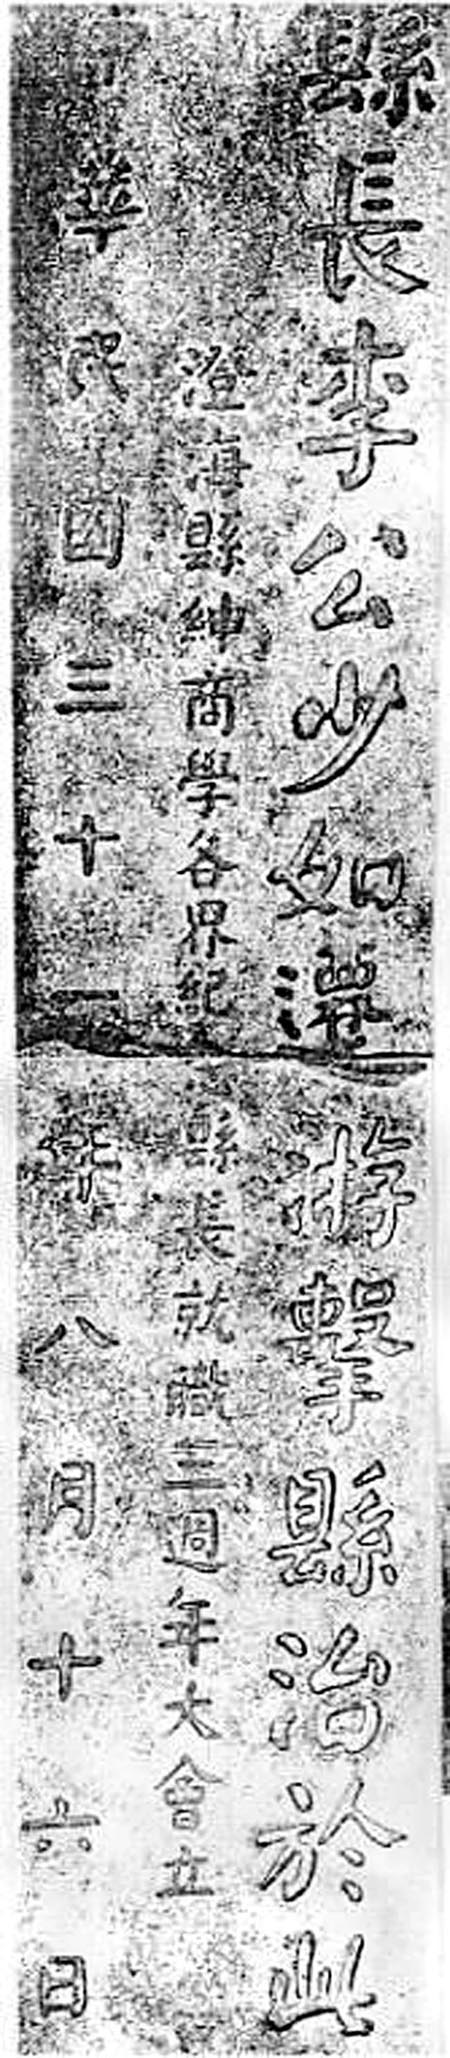 縣長李公少如游擊縣治於此
澄海縣紳商學各界紀縣長就職三週年大會立
華民國三十一年八月十六日